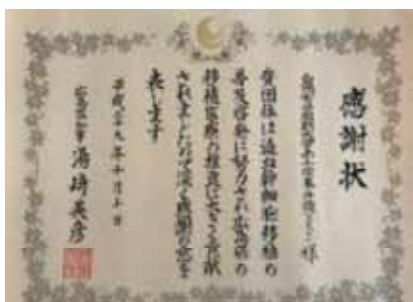 感謝状
様
貴団体は造血幹細胞移植の
普及啓発に努められ広島県の
移植医療の推進に大きく貢献
されましたので深く感謝の意を
表します
平成二十九年十月十日
広島県知事 湯﨑英彦